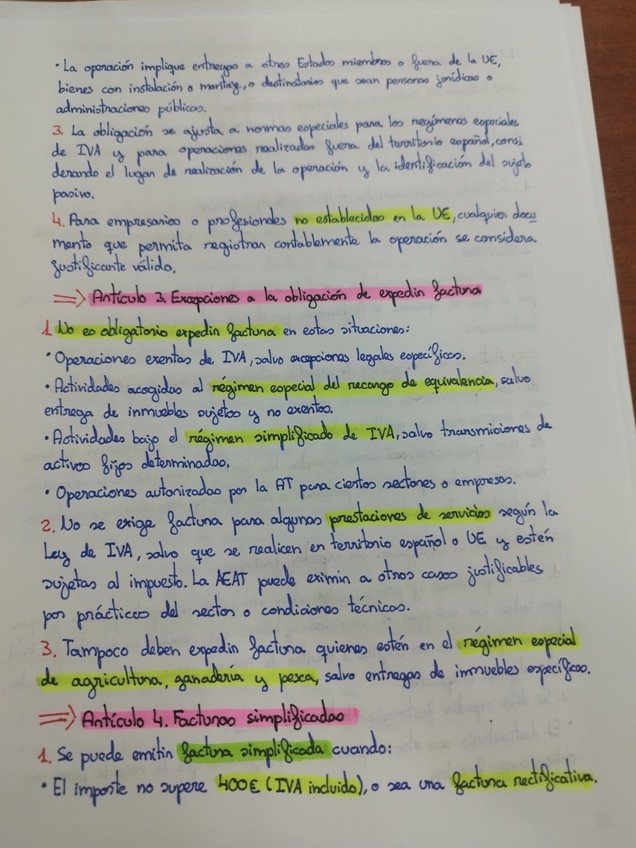 · La operación implique entregas a otros Estados miembros o fuera de la UE,
bienes con instalación o montaje, o destinatarios que sean personas jurídicas o
administraciones públicas.
3. La obligación se ajusta a normas especiales para los regímenes especiales
de IVA y para operaciones realizadas fuera del territorio español, consi
derando el lugar de realización de la operación y la identificación del sujeto
pasivo.
4. Para empresarios o profesionales no establecidos en la UE, cualquier docu
mento que permita registrar contablemente la operación se considera
justificante válido.
=> Artículo 3. Excepciones a la obligación de expedir factura
1. No es obligatorio expedir factura en estas situaciones:
· Operaciones exentas de IVA, salvo excepciones legales específicas.
· Actividades acogidas al régimen especial del recargo de equivalencia, salvo
entrega de inmuebles sujetos y no exentos.
· Actividades bajo el régimen simplificado de IVA, salvo transmisiones de
activos fijos determinadas.
· Operaciones autorizadas por la AT para ciertos sectores o empresas.
2. No se exige factura para algunas prestaciones de servicios según la
Ley de IVA, salvo que se realicen en territorio español o UE y estén
sujetas al impuesto. La AEAT puede eximir a otros casos justificables
por prácticas del sector o condiciones técnicas.
3. Tampoco deben expedir factura quienes estén en el régimen especial
de agricultura, ganadería y pesca, salvo entregas de inmuebles específicos.
=> Artículo 4. Facturas simplificadas
1. Se puede emitir factura simplificada cuando:
· El importe no supere 400€ (IVA incluido), o sea una factura rectificativa.